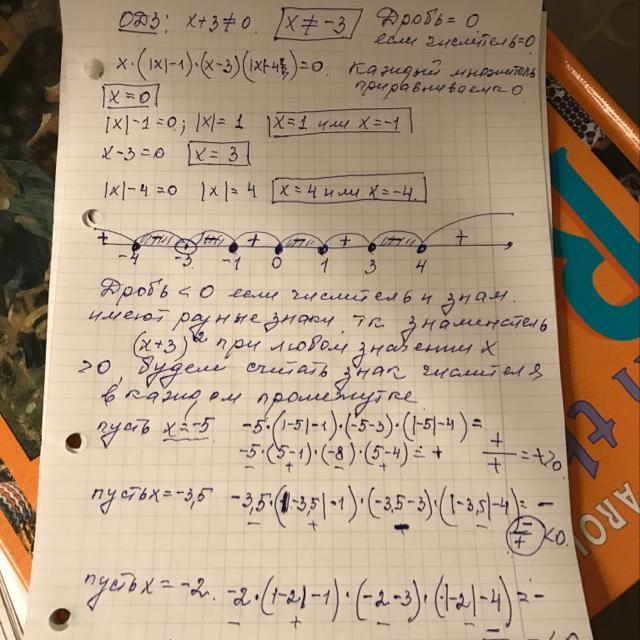 ОДЗ: x+3≠0. x≠-3 Дробь=0
если числитель=0
x·(|x|-1)·(x-3)(|x|-4)=0. Каждый множитель
приравниваем к 0
x=0
|x|-1=0; |x|=1 x=1 или x=-1
x-3=0 x=3
|x|-4=0 |x|=4 x=4 или x=-4.
+ + + +
-4 -3 -1 0 1 3 4
Дробь<0 если числитель и знам.
имеют разные знаки. т.к знаменатель
(x+3)² при любом значении x
>0, будем считать знак числителя,
в каждом промежутке.
пусть x=-5 -5·(|-5|-1)·(-5-3)·(|-5|-4)=
-5·(5-1)·(-8)·(5-4)=+ +/+=+>0
- + - +
пусть x=-3,5 -3,5·(|-3,5|-1)·(-3,5-3)·(|-3,5|-4)=-
- + - -
-/+<0.
пусть x=-2. -2·(|-2|-1)·(-2-3)·(|-2|-4)=-
- + - -
AROL